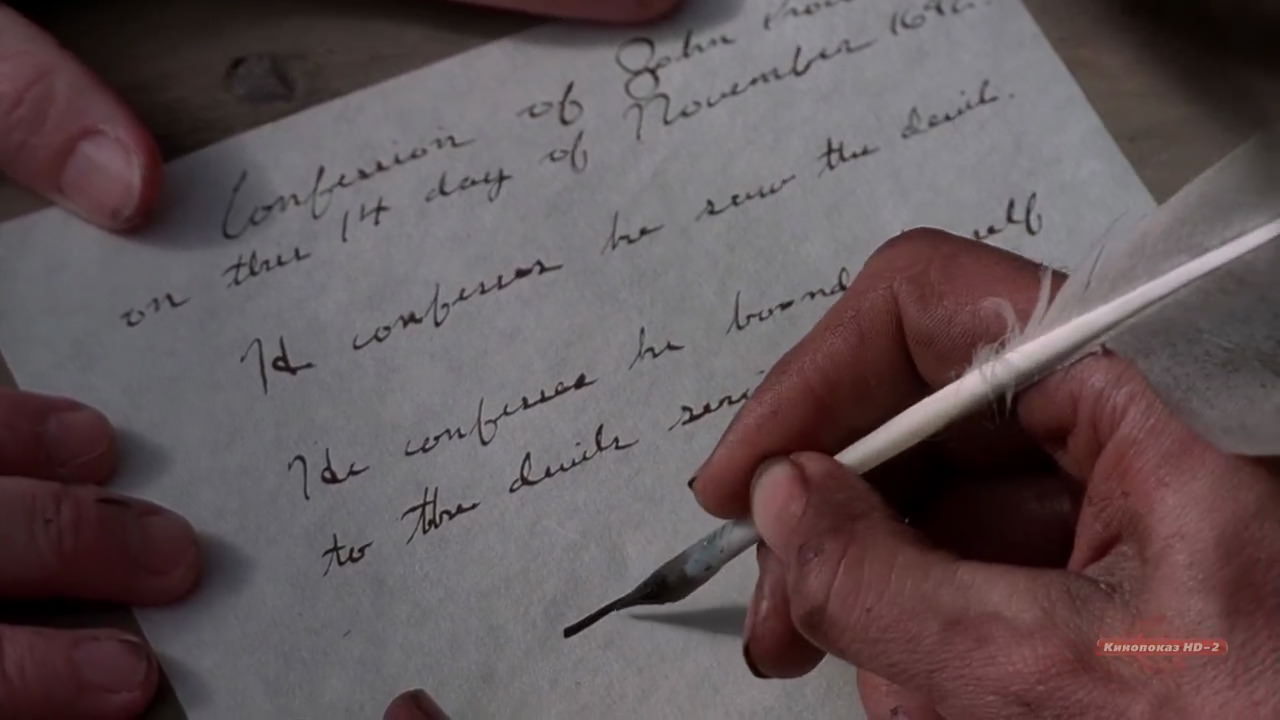 Confession of John
on this 14 day of November 1692.
He confesses he saw the devil.
He confesses he bound self
to the devils
Кинопоказ HD-2